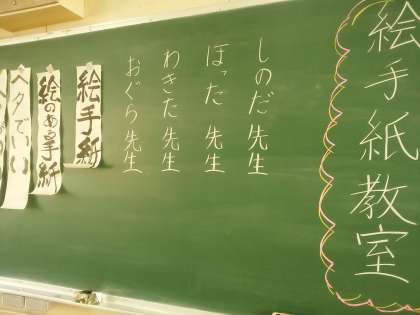 絵手紙教室
しのだ先生
ほった先生
わきた先生
おぐら先生
絵手紙
絵のある手紙
ヘタでいい